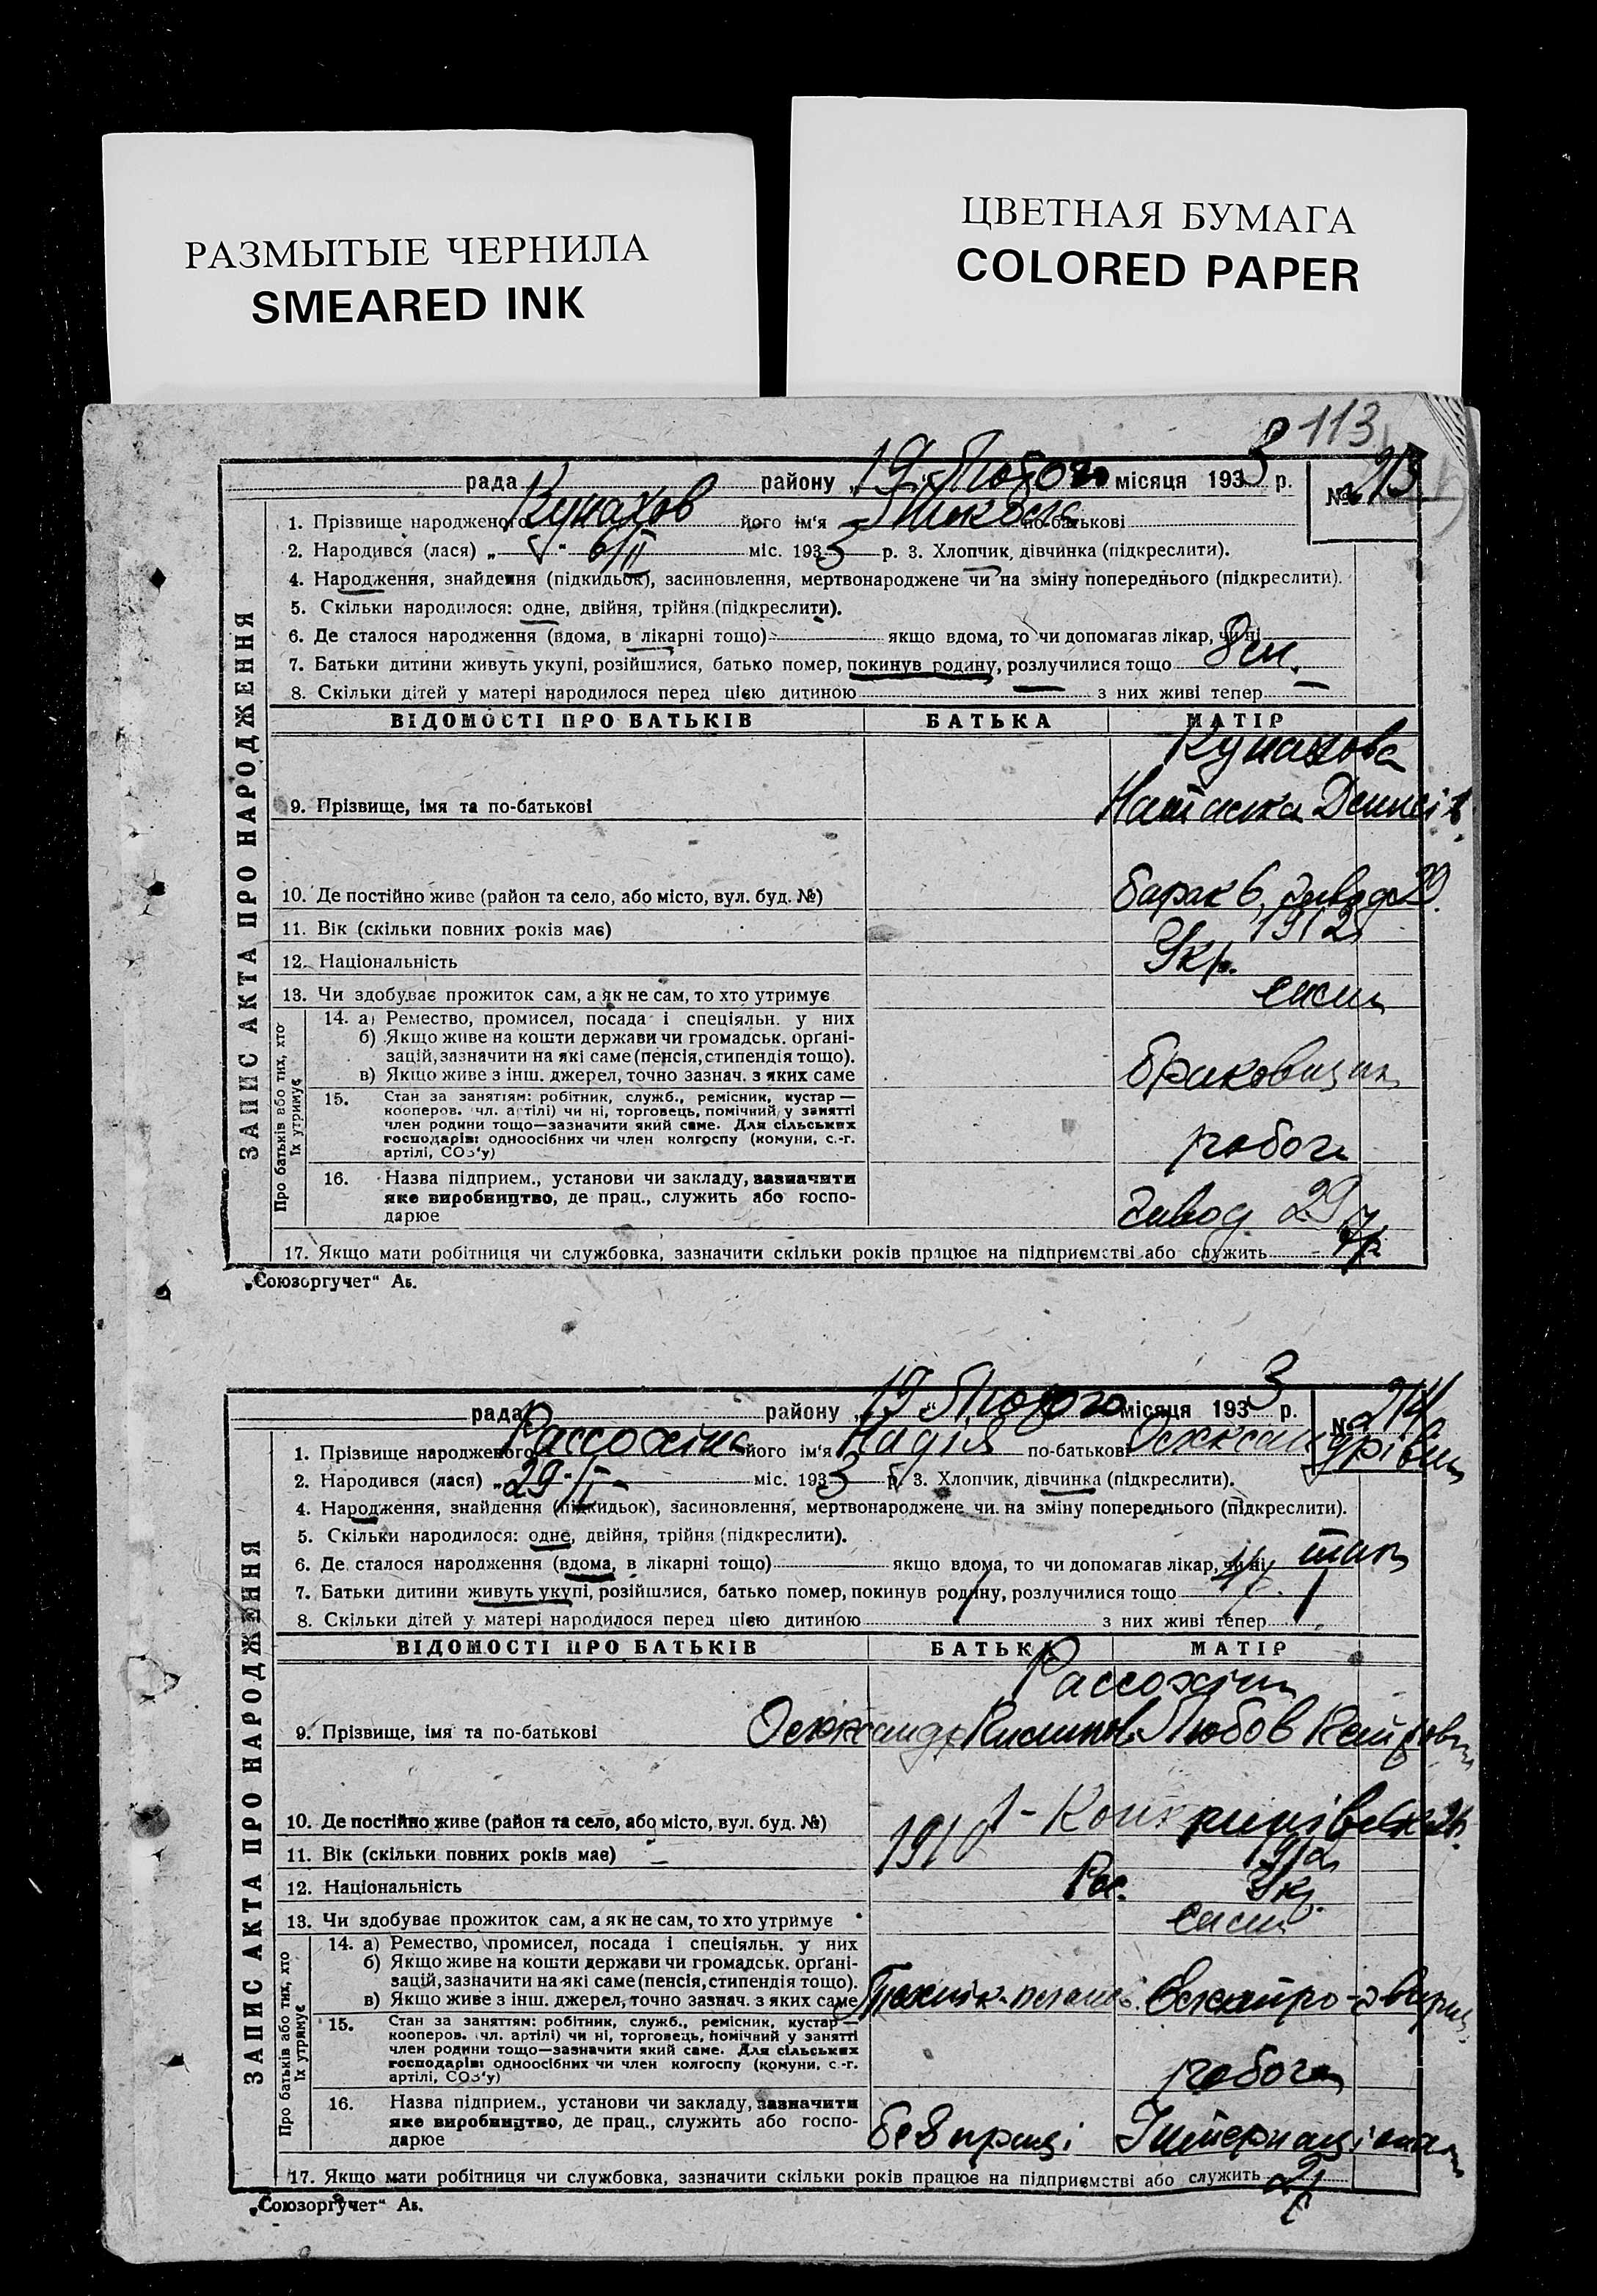 РАЗМЫТЫЕ ЧЕРНИЛА
SMEARED INK
ЦВЕТНАЯ БУМАГА
COLORED PAPER
113
ЗАПИС АКТА ПРО НАРОДЖЕННЯ
рада района району „19“ Лютого місяця 1933 р. № 213
1. Прізвище народженого Кунахов його ім'я Микола по-батькові
2. Народився (лася) „ “ 6/II міс. 1933 р. 3. Хлопчик, дівчинка (підкреслити).
4. Народження, знайдення (підкидьок), засиновлення, мертвонароджене чи на зміну попереднього (підкреслити).
5. Скільки народилося: одне, двійня, трійня (підкреслити).
6. Де сталося народження (вдома, в лікарні тощо) якщо вдома, то чи допомагав лікар, чи ні
7. Батьки дитини живуть укупі, розійшлися, батько помер, покинув родину, розлучилися тощо
8. Скільки дітей у матері народилося перед цією дитиною — з них живі тепер —
ВІДОМОСТІ ПРО БАТЬКІВ БАТЬКА МАТІР
Кунахова
9. Прізвище, імя та по-батькові Наталка Денисів
10. Де постійно живе (район та село, або місто, вул. буд. №) барак 6, завод 29
11. Вік (скільки повних років має) 1912
12. Національність Укр.
13. Чи здобуває прожиток сам, а як не сам, то хто утримує сама
Про батьків або тих, хто їх утримує
14. а) Ремество, промисел, посада і спеціяльн. у них
б) Якщо живе на кошти держави чи громадськ. орґані-
зацій, зазначити на які саме (пенсія, стипендія тощо).
в) Якщо живе з інш. джерел, точно зазнач. з яких саме
15. Стан за заняттям: робітник, служб., ремісник, кустар —
кооперов. чл. артілі) чи ні, торговець, помічний у занятті
член родини тощо—зазначити який саме. Для сільських
господарів: одноосібних чи член колгоспу (комуни, с.-г.
артілі, СОЗ'у)
16. Назва підприєм., установи чи закладу, зазначити
яке виробництво, де прац., служить або госпо-
дарює завод 29
17. Якщо мати робітниця чи службовка, зазначити скільки років працює на підприємстві або служить
„Союзоргучет“ Аб.
ЗАПИС АКТА ПРО НАРОДЖЕННЯ
рада району „19“ Лютого місяця 1933 р. № 214
1. Прізвище народженого Рассохіна його ім'я Надія по-батькові Олександрівна
2. Народився (лася) „29“ міс. 1933 р. 3. Хлопчик, дівчинка (підкреслити).
4. Народження, знайдення (підкидьок), засиновлення, мертвонароджене чи на зміну попереднього (підкреслити).
5. Скільки народилося: одне, двійня, трійня (підкреслити).
6. Де сталося народження (вдома, в лікарні тощо) якщо вдома, то чи допомагав лікар, чи ні так
7. Батьки дитини живуть укупі, розійшлися, батько помер, покинув родину, розлучилися тощо
8. Скільки дітей у матері народилося перед цією дитиною 1 з них живі тепер 1
ВІДОМОСТІ ПРО БАТЬКІВ БАТЬКА МАТІР
Рассохіни
9. Прізвище, імя та по-батькові Олександр Любов
10. Де постійно живе (район та село, або місто, вул. буд. №)
11. Вік (скільки повних років має) 1910 1912
12. Національність Рос. Укр.
13. Чи здобуває прожиток сам, а як не сам, то хто утримує сами
Про батьків або тих, хто їх утримує
14. а) Ремество, промисел, посада і спеціяльн. у них
б) Якщо живе на кошти держави чи громадськ. орґані-
зацій, зазначити на які саме (пенсія, стипендія тощо).
в) Якщо живе з інш. джерел, точно зазнач. з яких саме
15. Стан за заняттям: робітник, служб., ремісник, кустар —
кооперов. чл. артілі) чи ні, торговець, помічний у занятті
член родини тощо—зазначити який саме. Для сільських
господарів: одноосібних чи член колгоспу (комуни, с.-г.
артілі, СОЗ'у)
16. Назва підприєм., установи чи закладу, зазначити
яке виробництво, де прац., служить або госпо-
дарює без праці Інтернаціонал
17. Якщо мати робітниця чи службовка, зазначити скільки років працює на підприємстві або служить 2 р
„Союзоргучет“ Аб.